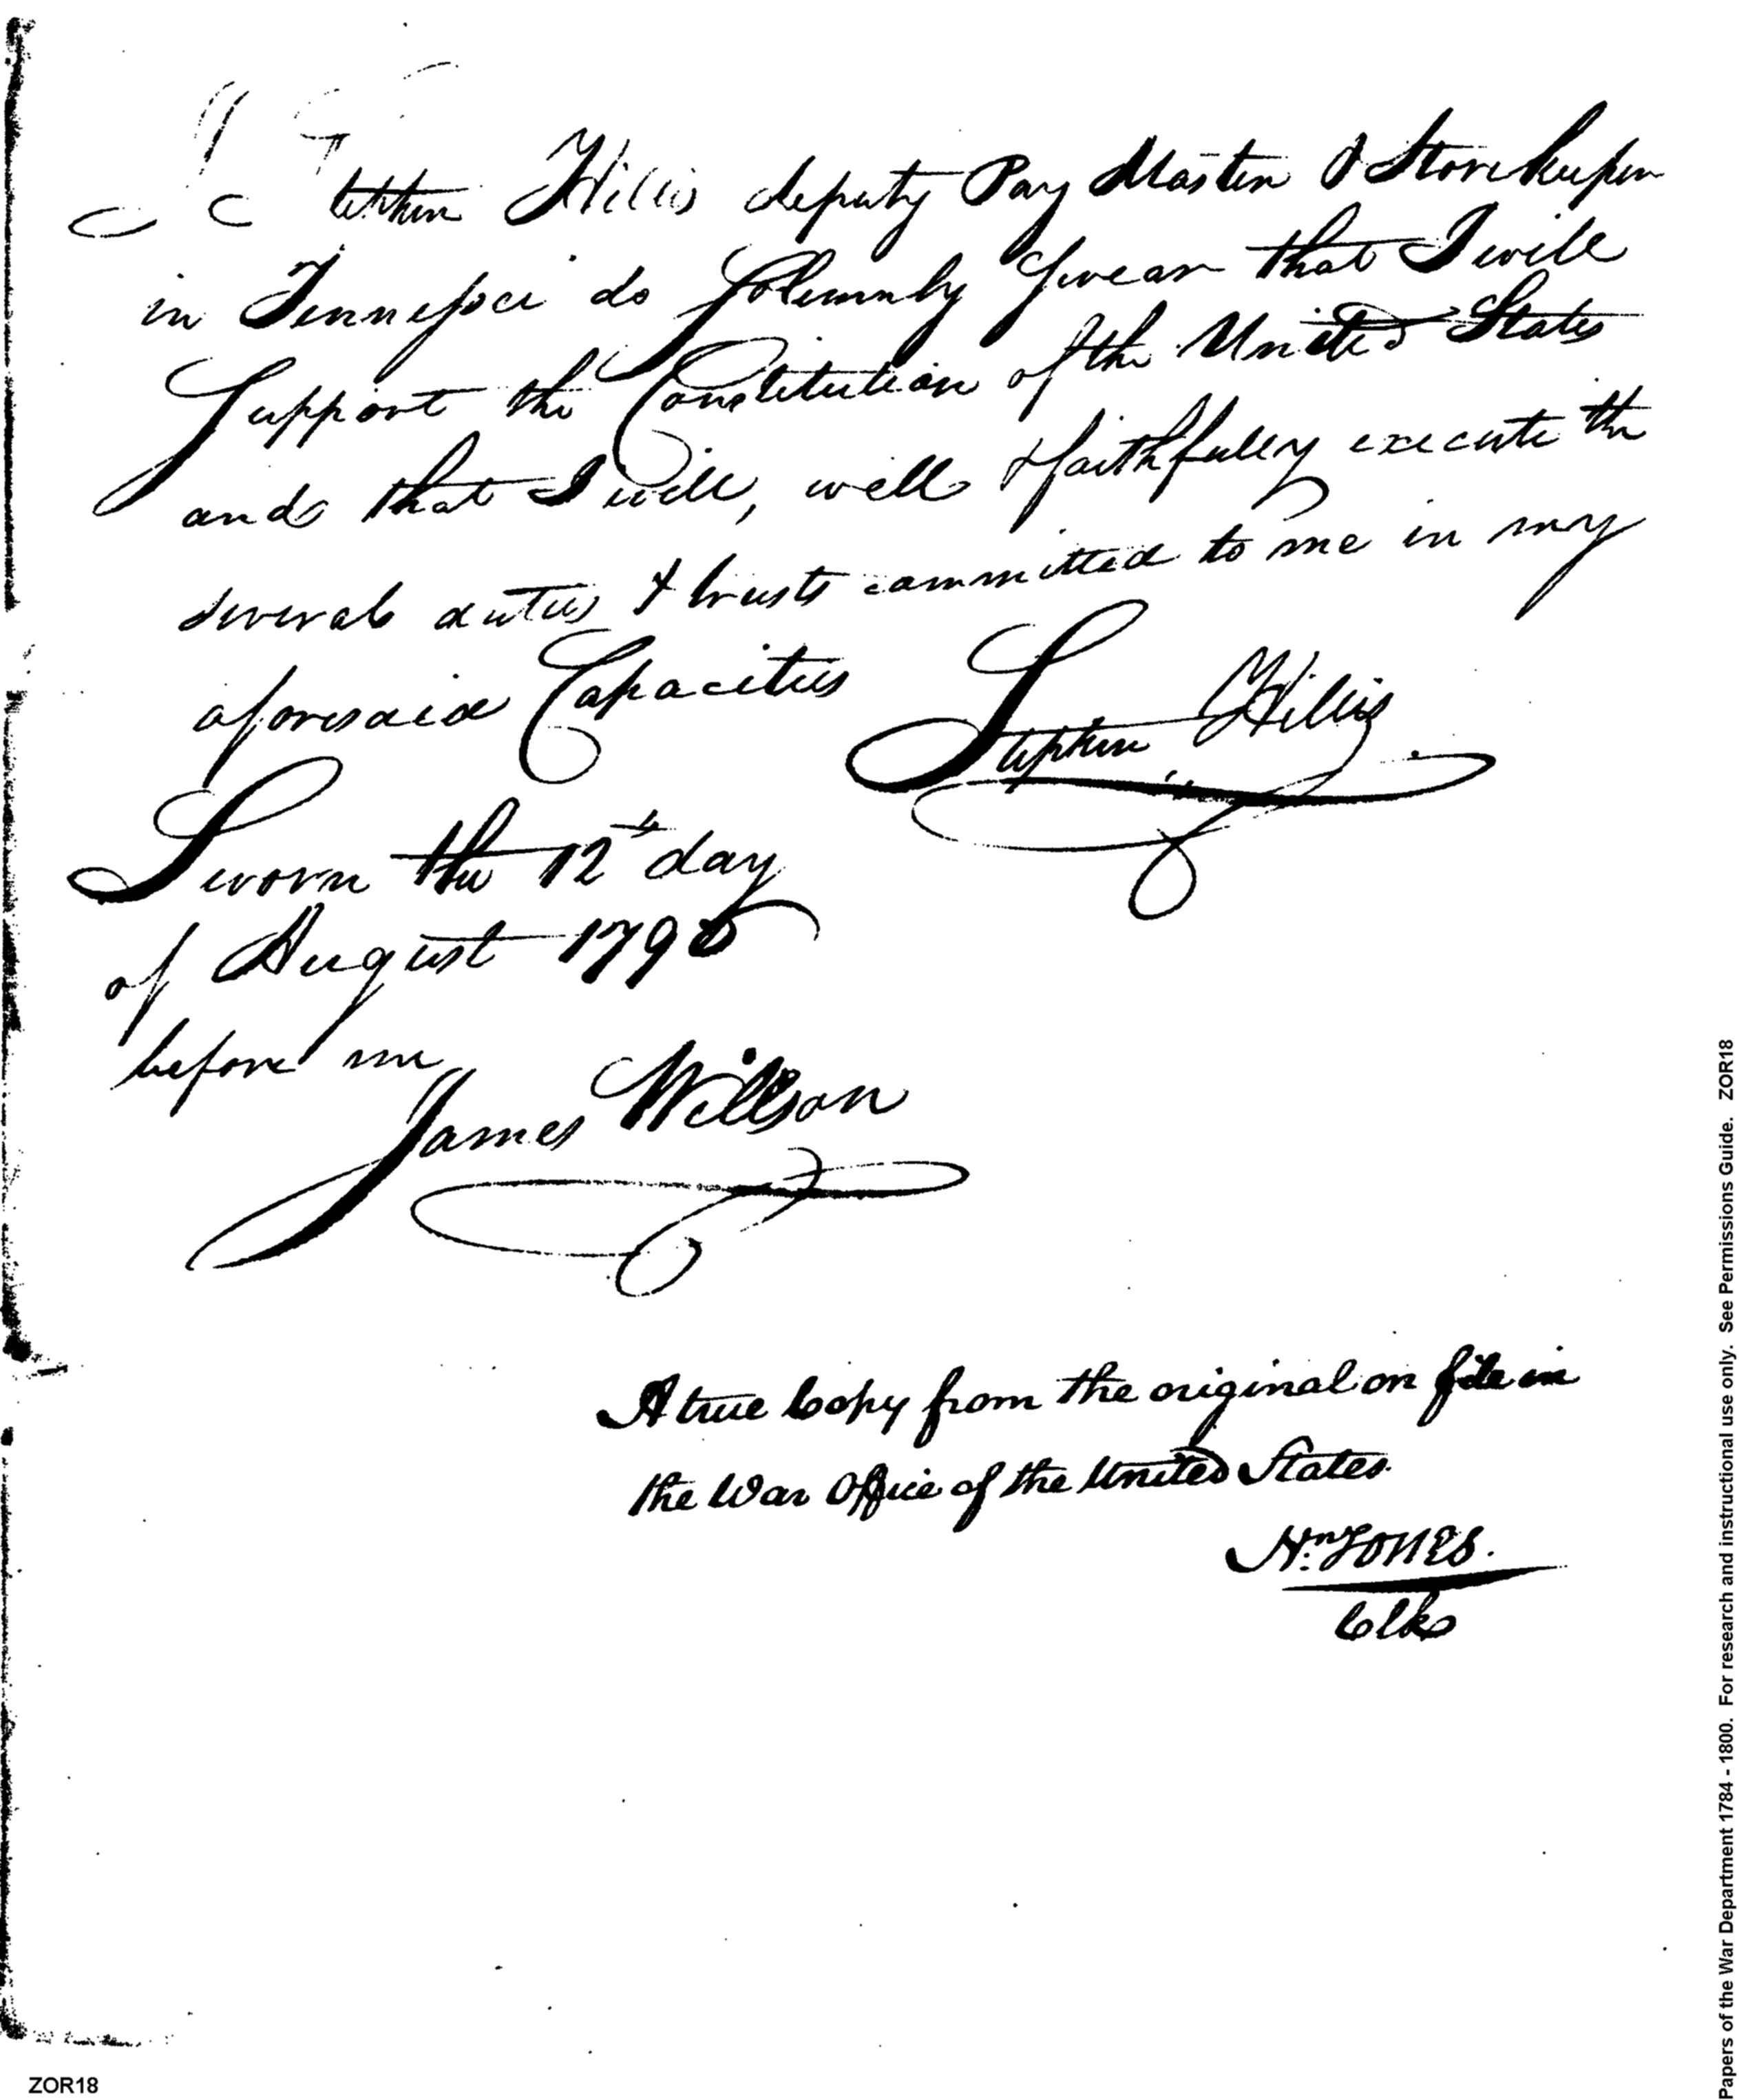 Stephen Hillis deputy Pay Master & Storekeeper
in Tennessee do Solemnly Swear that I will
Support the Constitution of the United States
and that I will, well & faithfully execute the
several duties & trusts committed to me in my
aforesaid Capacities
Stephen Hillis
Sworn the 12th day
of August 1796
before me
James Willson
A true Copy from the original on file in
the War Office of the United States.
Hn. Jones.
Clk
Papers of the War Department 1784 - 1800. For research and instructional use only. See Permissions Guide. ZOR18
ZOR18